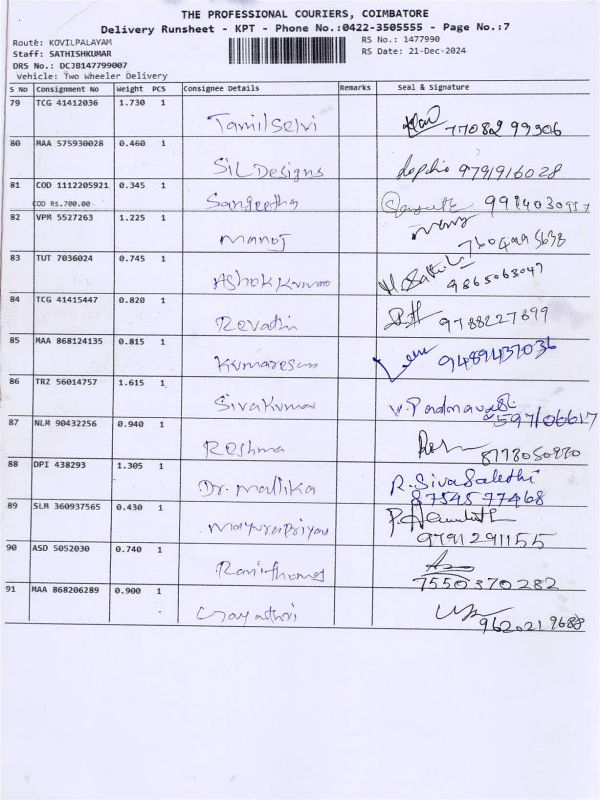 THE PROFESSIONAL COURIERS, COIMBATORE
Delivery Runsheet - KPT - Phone No.:0422-3505555 - Page No.:7
Route: KOVILPALAYAM RS No.: 1477990
Staff: SATHISHKUMAR RS Date: 21-Dec-2024
DRS No.: DCJB147799007
Vehicle: Two Wheeler Delivery
S No Consignment No Weight PCS Consignee Details Remarks Seal & Signature
79 TCG 41412036 1.730 1
Tamilselvi 77082 99906
80 MAA 575930028 0.460 1
SiL Designs 9791916028
81 COD 1112205921 0.345 1
COD Rs.700.00 Sangeetha
82 VPM 5527263 1.225 1
Manoj
83 TUT 7036024 0.745 1
Ashok Kumar 9865063047
84 TCG 41415447 0.820 1
Revathi 9788227899
85 MAA 868124135 0.815 1
Kumaresan 9489437036
86 TRZ 56014757 1.615 1
Sivakumar
87 NLM 90432256 0.940 1
Reshma
88 DPI 438293 1.305 1
Dr. Mallika R. Sivasakthi
8754577468
89 SLM 360937565 0.430 1
Mayurapriyan
9791291155
90 ASD 5052030 0.740 1
7550370282
91 MAA 868206289 0.900 1
Gayathri 9620219688